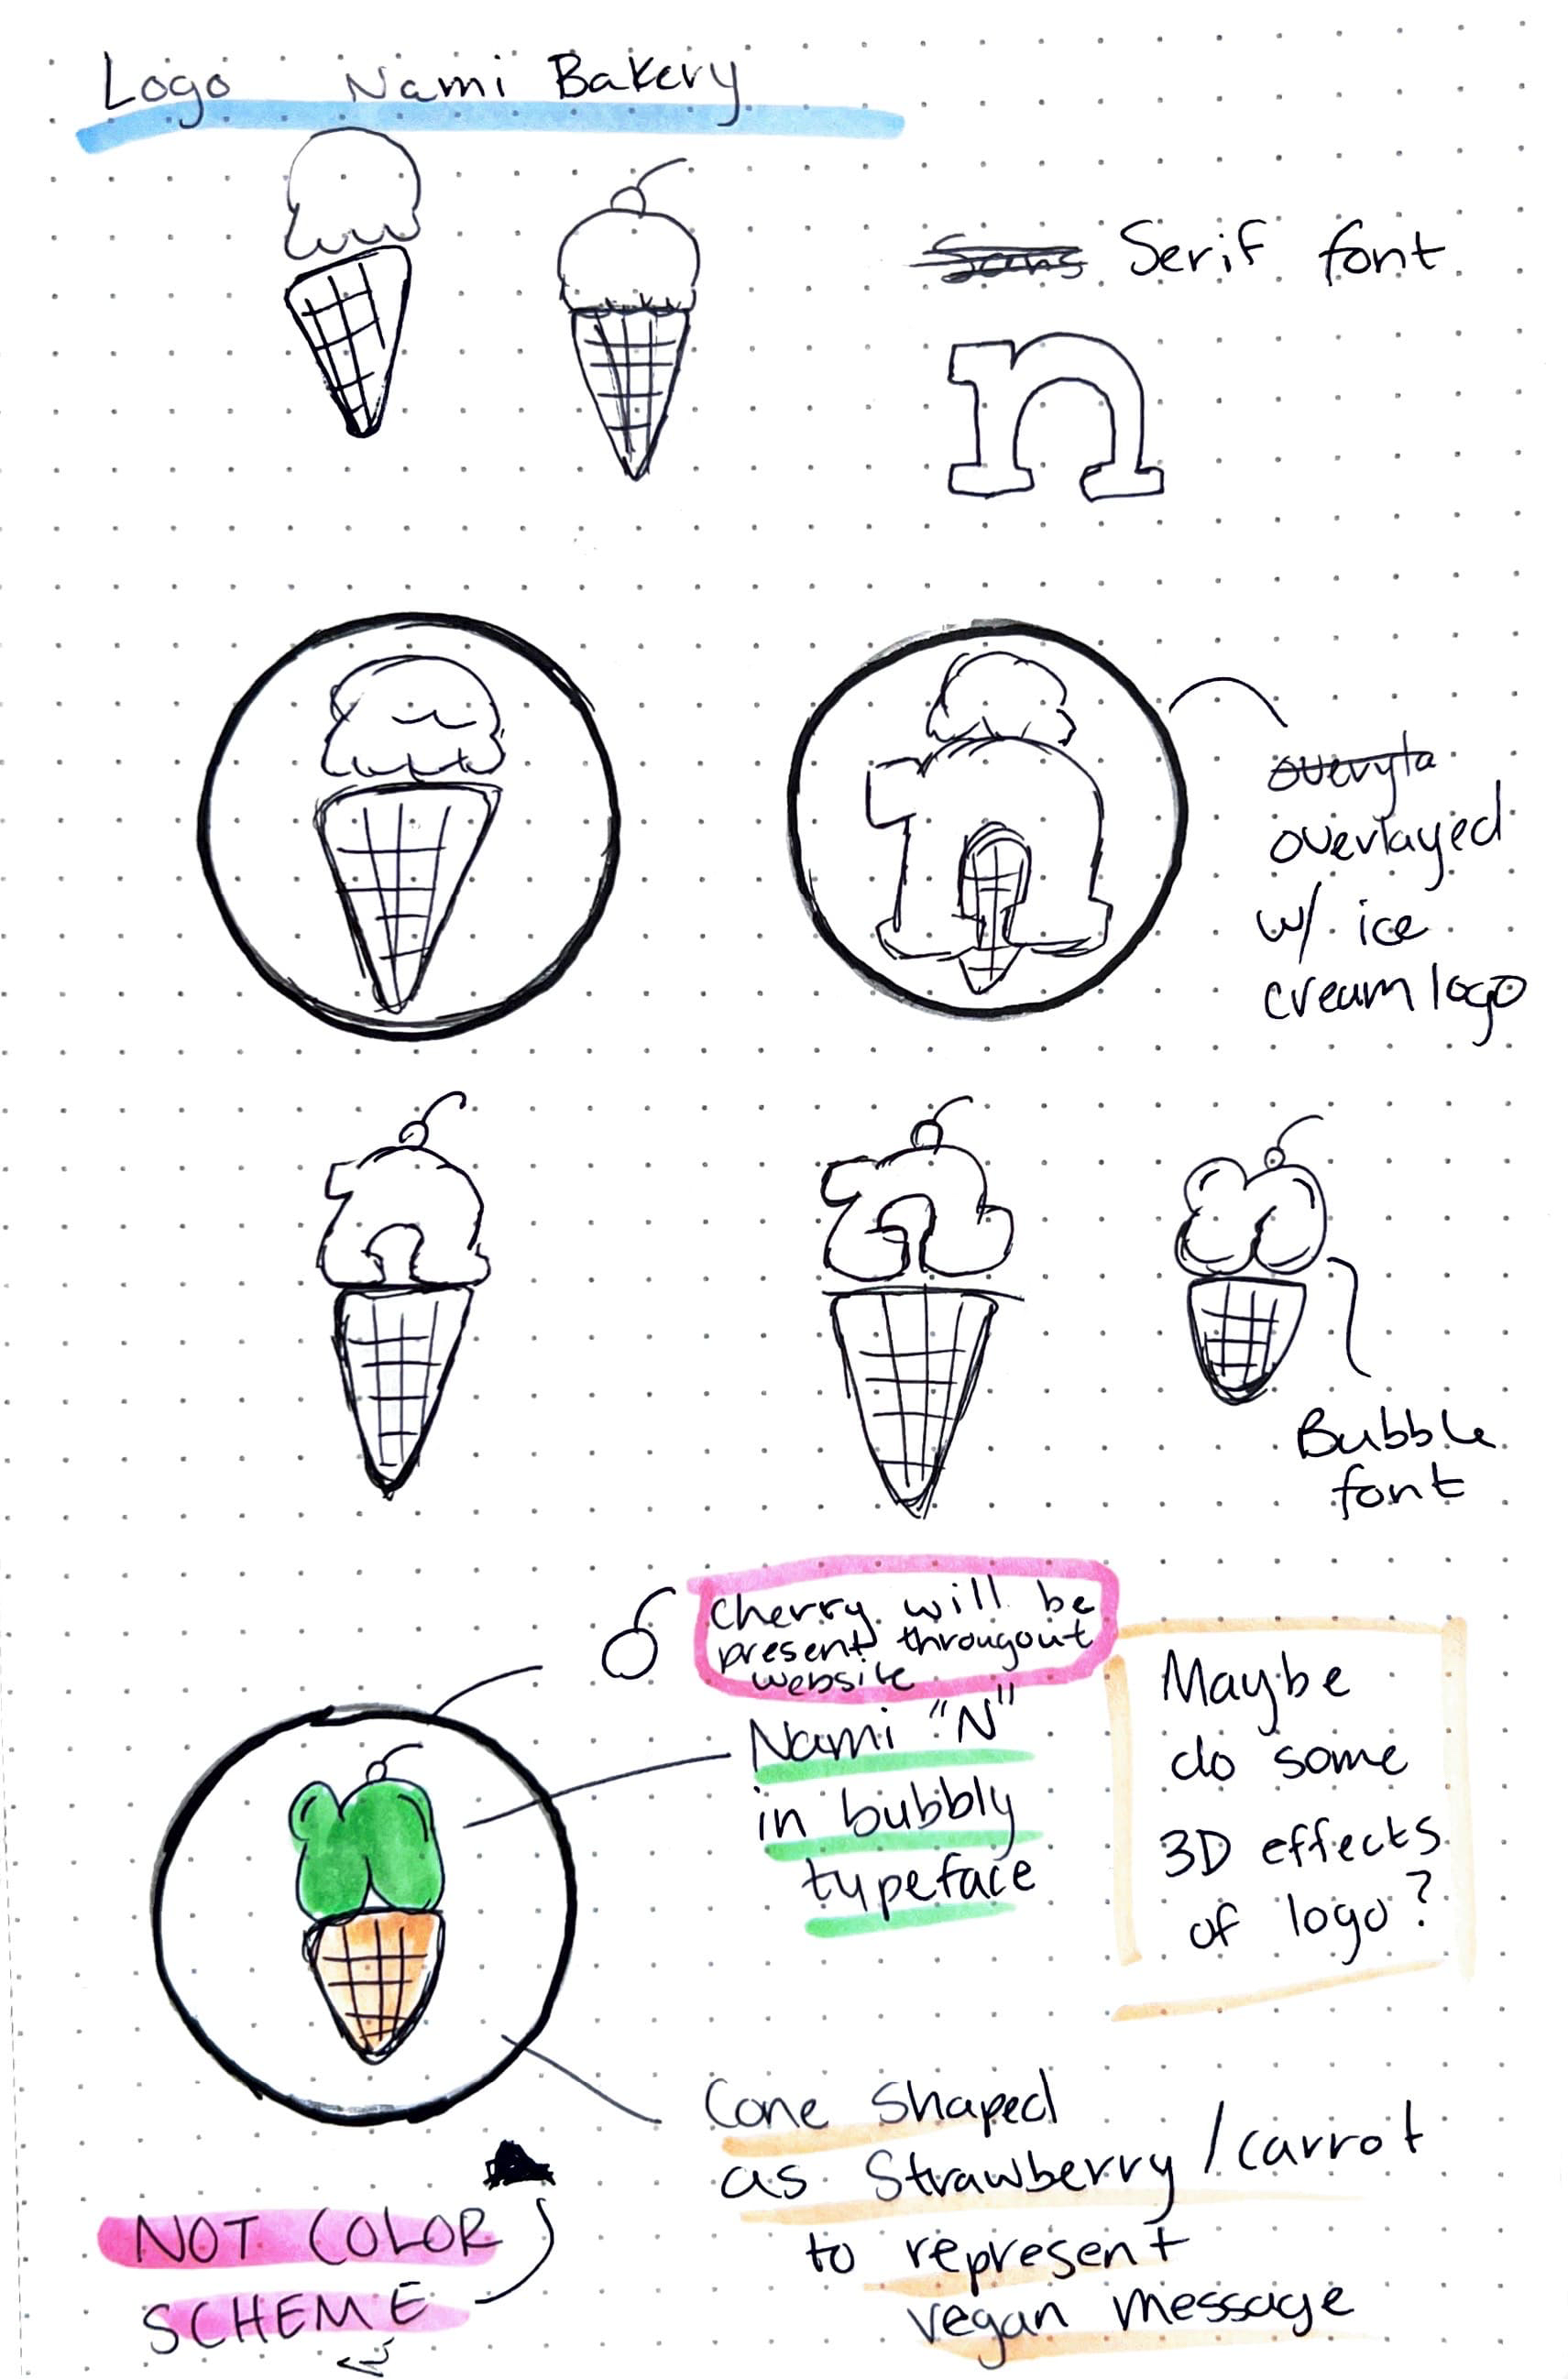 Logo Nami Bakery
Sans Serif font
n
overyla
overlayed
w/ ice
cream logo
Bubble
font
cherry will be
present througout
website
Nami "N"
in bubbly
typeface
Maybe
do some
3D effects
of logo?
Cone shaped
as Strawberry/carrot
to represent
vegan message
NOT COLOR
SCHEME